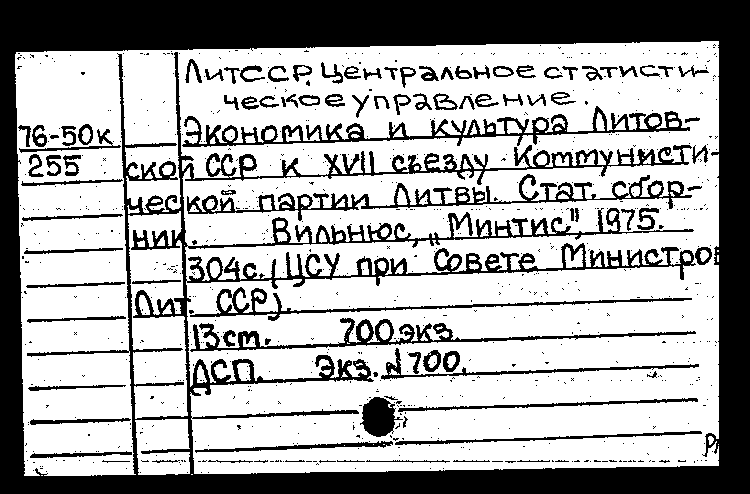 ЛитССР. Центральное статисти-
ческое управление.
76-50к Экономика и культура Литов-
255 ской ССР к XVII съезду Коммунисти-
ческой партии Литвы. Стат. сбор-
ник. Вильнюс, „Минтис", 1975.
304с. (ЦСУ при Совете Министров
Лит. ССР).
13см. 700 экз.
ДСП. Экз. №700.